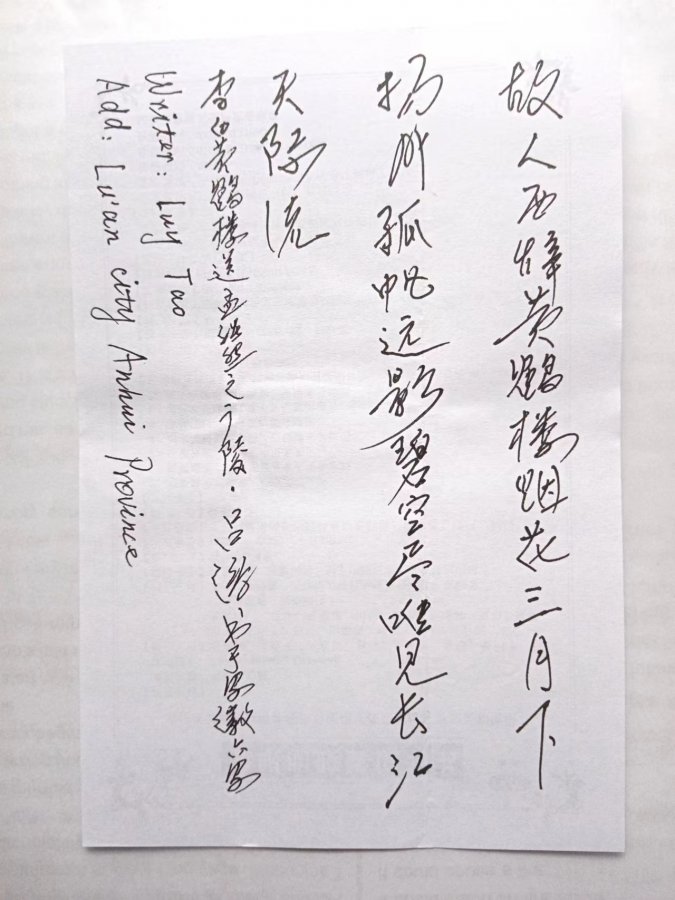 故人西辞黄鹤楼烟花三月下
扬州孤帆远影碧空尽唯见长江
天际流
李白黄鹤楼送孟浩然之广陵·吕书于安徽六安
Writer: Luy Tao
Add: Lu'an city Anhui Province